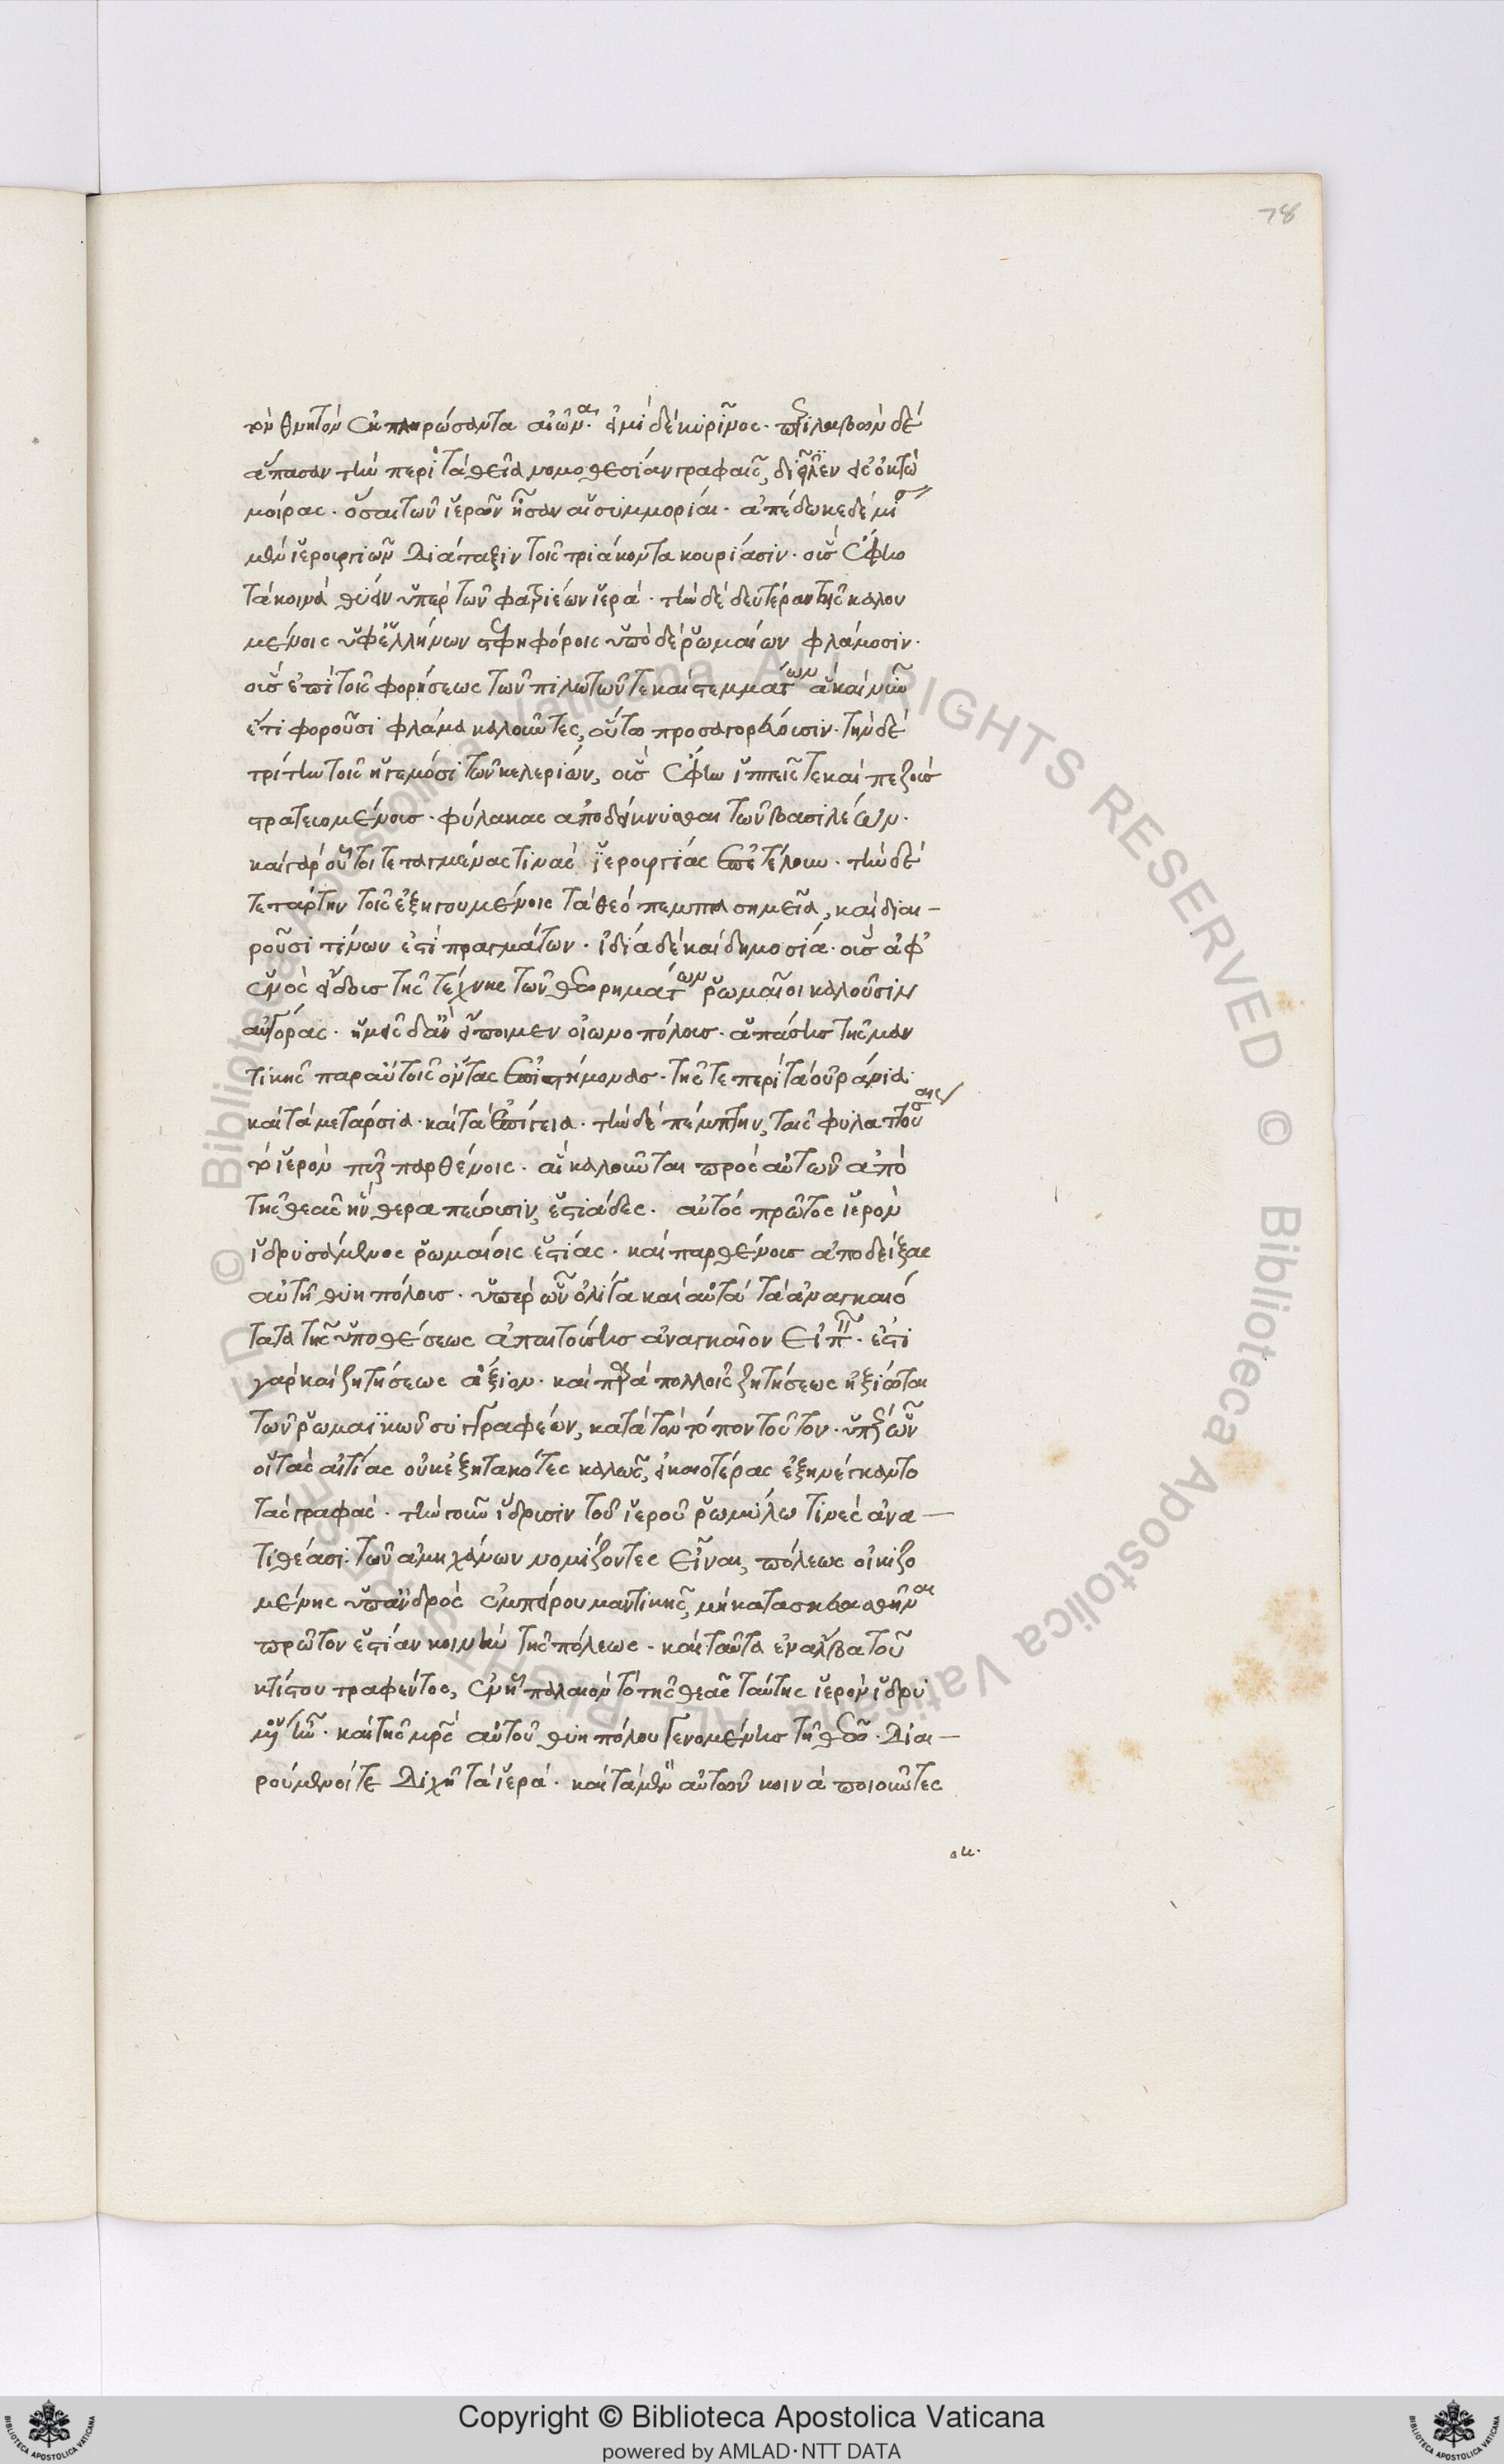 78
τὸν θνητὸν ἐκπληρώσαντα αἰῶνα. εἰμὶ δὲ κυρῖνος. περιλαβὼν δὲ
ἅπασαν τὴν περὶ τὰ θεῖα νομοθεσίαν γραφαῖς, διεῖλεν εἰς ὀκτὼ
μοίρας. ὅσαι τῶν ἱερῶν ἦσαν αἱ συμμορίαι. ἀπέδωκε δὲ μίαν
μὲν ἱερουργιῶν διάταξιν τοῖς τριάκοντα κουρίασιν. οὓς ἔφην
τὰ κοινὰ θύειν ὑπὲρ τῶν φατριέων ἱερά. τὴν δὲ δευτέραν τοῖς καλου
μένοις ὑφ' ἑλλήνων στεφηφόροις ὑπὸ δὲ ῥωμαίων φλάμοσιν.
οὓς ἐπὶ τοῖς φορήσεως τῶν πίλων τῶν τε καὶ στεμμάτων ἃ καὶ νῦν
ἔτι φοροῦσι φλάμα καλοῦντες, οὕτω προσαγορεύουσιν. τὴν δὲ
τρίτην τοῖς ἡγεμόσι τῶν κελερίων, οὓς ἔφην ἱππεῖς τε καὶ πεζοὺς
στρατευομένους. φύλακας ἀποδείκνυσθαι τῶν βασιλέων.
καὶ γὰρ οὗτοι τεταγμένας τινὰς ἱερουργίας ἐπετέλουν. τὴν δὲ
τετάρτην τοῖς ἐξηγουμένοις τὰ θεόπεμπτα σημεῖα, καὶ διαι-
ροῦσι τίνων ἐστὶ πραγμάτων. ἰδία δὲ καὶ δημοσία. οὓς ἀφ'
ἑνὸς εἴδους τῆς τέχνης τῶν θεωρημάτων ῥωμαῖοι καλοῦσιν
αὐγόρας. ἡμεῖς δ' ἂν εἴποιμεν οἰωνοπόλους. ἁπάσης τῆς μαν
τικῆς παρ' αὐτοῖς ὄντας ἐπιστήμονας. τῆς τε περὶ τὰ οὐράνια.
καὶ τὰ μετάρσια. καὶ τὰ ἐπίγεια. τὴν δὲ πέμπτην, ταῖς φυλαττούσαις
τὸ ἱερὸν πῦρ παρθένοις. αἳ καλοῦνται πρὸς αὐτῶν ἀπὸ
τῆς θεᾶς ἣν θεραπεύουσιν, ἑστιάδες. αὐτὸς πρῶτος ἱερὸν
ἱδρυσάμενος ῥωμαίοις ἑστίας. καὶ παρθένους ἀποδείξας
αὐτῇ θυηπόλους. ὑπὲρ ὧν ὀλίγα καὶ αὐτὰ τὰ ἀναγκαιό
τατα τῆς ὑποθέσεως ἀπαιτούσης ἀναγκαῖον εἰπεῖν. ἔστι
γὰρ καὶ ζητήσεως ἄξιον. καὶ παρὰ πολλοῖς ζητήσεως ἠξίωται
τῶν ῥωμαϊκῶν συγγραφέων, κατὰ τὸν τόπον τοῦτον. ὑπὲρ ὧν
οἱ τὰς αἰτίας οὐκ ἐξητακότες καλῶς, εἰκαιοτέρας ἐξηνέγκαντο
τὰς γραφάς. τὴν γοῦν ἵδρυσιν τοῦ ἱεροῦ ῥωμύλω τινὲς ἀνα-
τιθέασι. τῶν ἀμηχάνων νομίζοντες εἶναι, πόλεως οἰκιζο
μένης ὑπ' ἀνδρὸς ἐμπείρου μαντικῆς, μὴ κατασκευασθῆναι
πρῶτον ἑστίαν κοινὴν τῆς πόλεως. καὶ ταῦτα ἐν ἄλβα τοῦ
κτίστου τραφέντος, ἐν ᾗ παλαιὸν τὸ τῆς θεᾶς ταύτης ἱερὸν ἱδρυ
μένον ἦν. καὶ τῆς μητρὸς αὐτοῦ θυηπόλου γενομένης τῇ θεῷ. διαι-
ρούμενοί τε διχῇ τὰ ἱερά. καὶ τὰ μὲν αὐτῶν κοινὰ ποιοῦντες